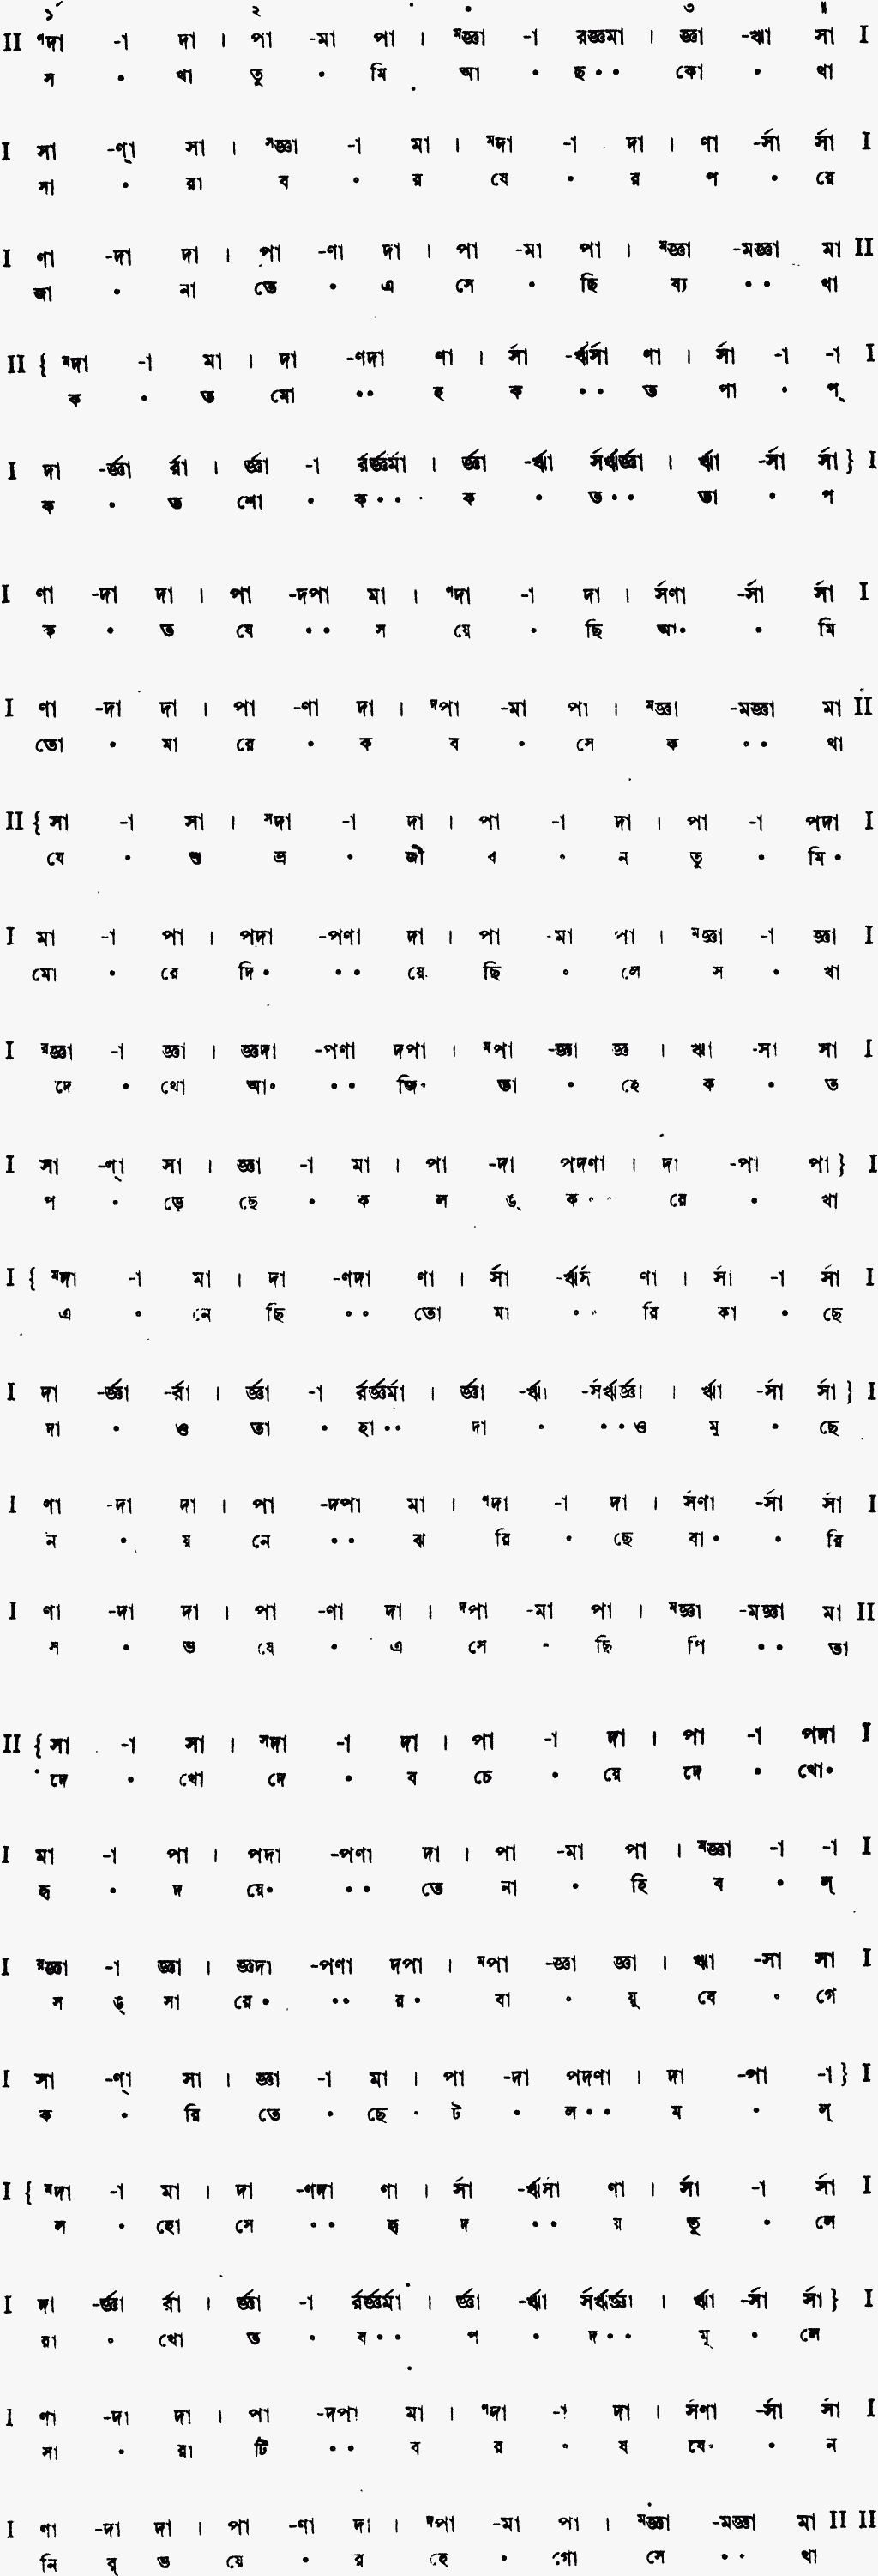 ১´ ২ ০ ৩ ॥
II ণদা -া দা । পা -মা পা । মজ্ঞা -া রজ্ঞমা । জ্ঞা -ঋা সা I
স • খা তু • মি আ • ছ • • কো • থা
I সা -ণ্া সা । সজ্ঞা -া মা । মদা -া দা । ণা -র্সা র্সা I
সা • রা ব • র ষে • র প • রে
I ণা -দা দা । পা -ণা দা । পা -মা পা । মজ্ঞা -মজ্ঞা মা II
জা • না তে • এ সে • ছি ব্য • • থা
II { মদা -া মা । দা -ণদা ণা । র্সা -র্ঋর্সা ণা । র্সা -া -া I
ক • ত মো • • হ ক • • ত পা • প্
I দা -র্জ্ঞা র্রা । র্জ্ঞা -া র্রর্জ্ঞর্মা । র্জ্ঞা -র্ঋা র্সর্ঋর্জ্ঞা । র্ঋা -র্সা র্সা } I
ক • ত শো • ক • • ক • ত • • তা • প
I ণা -দা দা । পা -দপা মা । ণদা -া দা । র্সণা -র্সা র্সা I
ক • ত যে • • স য়ে • ছি আ • • মি
I ণা -দা দা । পা -ণা দা । দপা -মা পা । মজ্ঞা -মজ্ঞা মা II
তো • মা রে • ক ব • সে ক • • থা
II { সা -া সা । সদা -া দা । পা -া দা । পা -া পদা I
যে • শু ভ্র • জী ব • ন তু • মি •
I মা -া পা । পদা -পণা দা । পা -মা পা । মজ্ঞা -া জ্ঞা I
মো • রে দি • • • য়ে ছি • লে স • খা
I রজ্ঞা -া জ্ঞা । জ্ঞদা -পণা দপা । মপা -জ্ঞা জ্ঞ । ঋা -সা সা I
দে • খো আ • • • জি • তা • হে ক • ত
I সা -ণ্া সা । জ্ঞা -া মা । পা -দা পদণা । দা -পা পা } I
প • ড়ে ছে • ক ল ঙ্ ক • • রে • খা
I { মদা -া মা । দা -ণদা ণা । র্সা -র্ঋর্স ণা । র্সা -া র্সা I
এ • নে ছি • • তো মা • • রি কা • ছে
I দা -র্জ্ঞা -র্রা । র্জ্ঞা -া র্রর্জ্ঞর্মা । র্জ্ঞা -র্ঋা -র্সর্ঋর্জ্ঞা । র্ঋা -র্সা র্সা } I
দা • ও তা • হা • • দা • • • ও মু • ছে
I ণা -দা দা । পা -দপা মা । ণদা -া দা । র্সণা -র্সা র্সা I
ন • য় নে • • ঝ রি • ছে বা • • রি
I ণা -দা দা । পা -ণা দা । দপা -মা পা । মজ্ঞা -মজ্ঞা মা II
স • ভ য়ে • এ সে • ছি পি • • তা
II { সা -া সা । সদা -া দা । পা -া দা । পা -া পদা I
দে • খো দে • ব চে • য়ে দে • খো •
I মা -া পা । পদা -পণা দা । পা -মা পা । মজ্ঞা -া -া I
হৃ • দ য়ে • • • তে না • হি ব • ল্
I রজ্ঞা -া জ্ঞা । জ্ঞদা -পণা দপা । মপা -জ্ঞা জ্ঞা । ঋা -সা সা I
স ঙ্ সা রে • • • র • বা • য়ু বে • গে
I সা -ণ্া সা । জ্ঞা -া মা । পা -দা পদণা । দা -পা -া } I
ক • রি তে • ছে ট • ল • • ম • ল্
I { মদা -া মা । দা -ণদা ণা । র্সা -র্ঋর্সা ণা । র্সা -া র্সা I
ল • হো সে • • হৃ দ • • য় তু • লে
I দা -র্জ্ঞা র্রা । র্জ্ঞা -া র্রর্জ্ঞর্মা । র্জ্ঞা -র্ঋা র্সর্ঋর্জ্ঞা । র্ঋা -র্সা র্সা } I
রা • খো ত • ব • • প • দ • • মূ • লে
I ণা -দা দা । পা -দপা মা । ণদা -া দা । র্সণা -র্সা র্সা I
সা • রা টি • • ব র • ষ যে • • ন
I ণা -দা দা । পা -ণা দা । দপা -মা পা । মজ্ঞা -মজ্ঞা মা II II
নি র্ ভ য়ে • র হে • গো সে • • থা